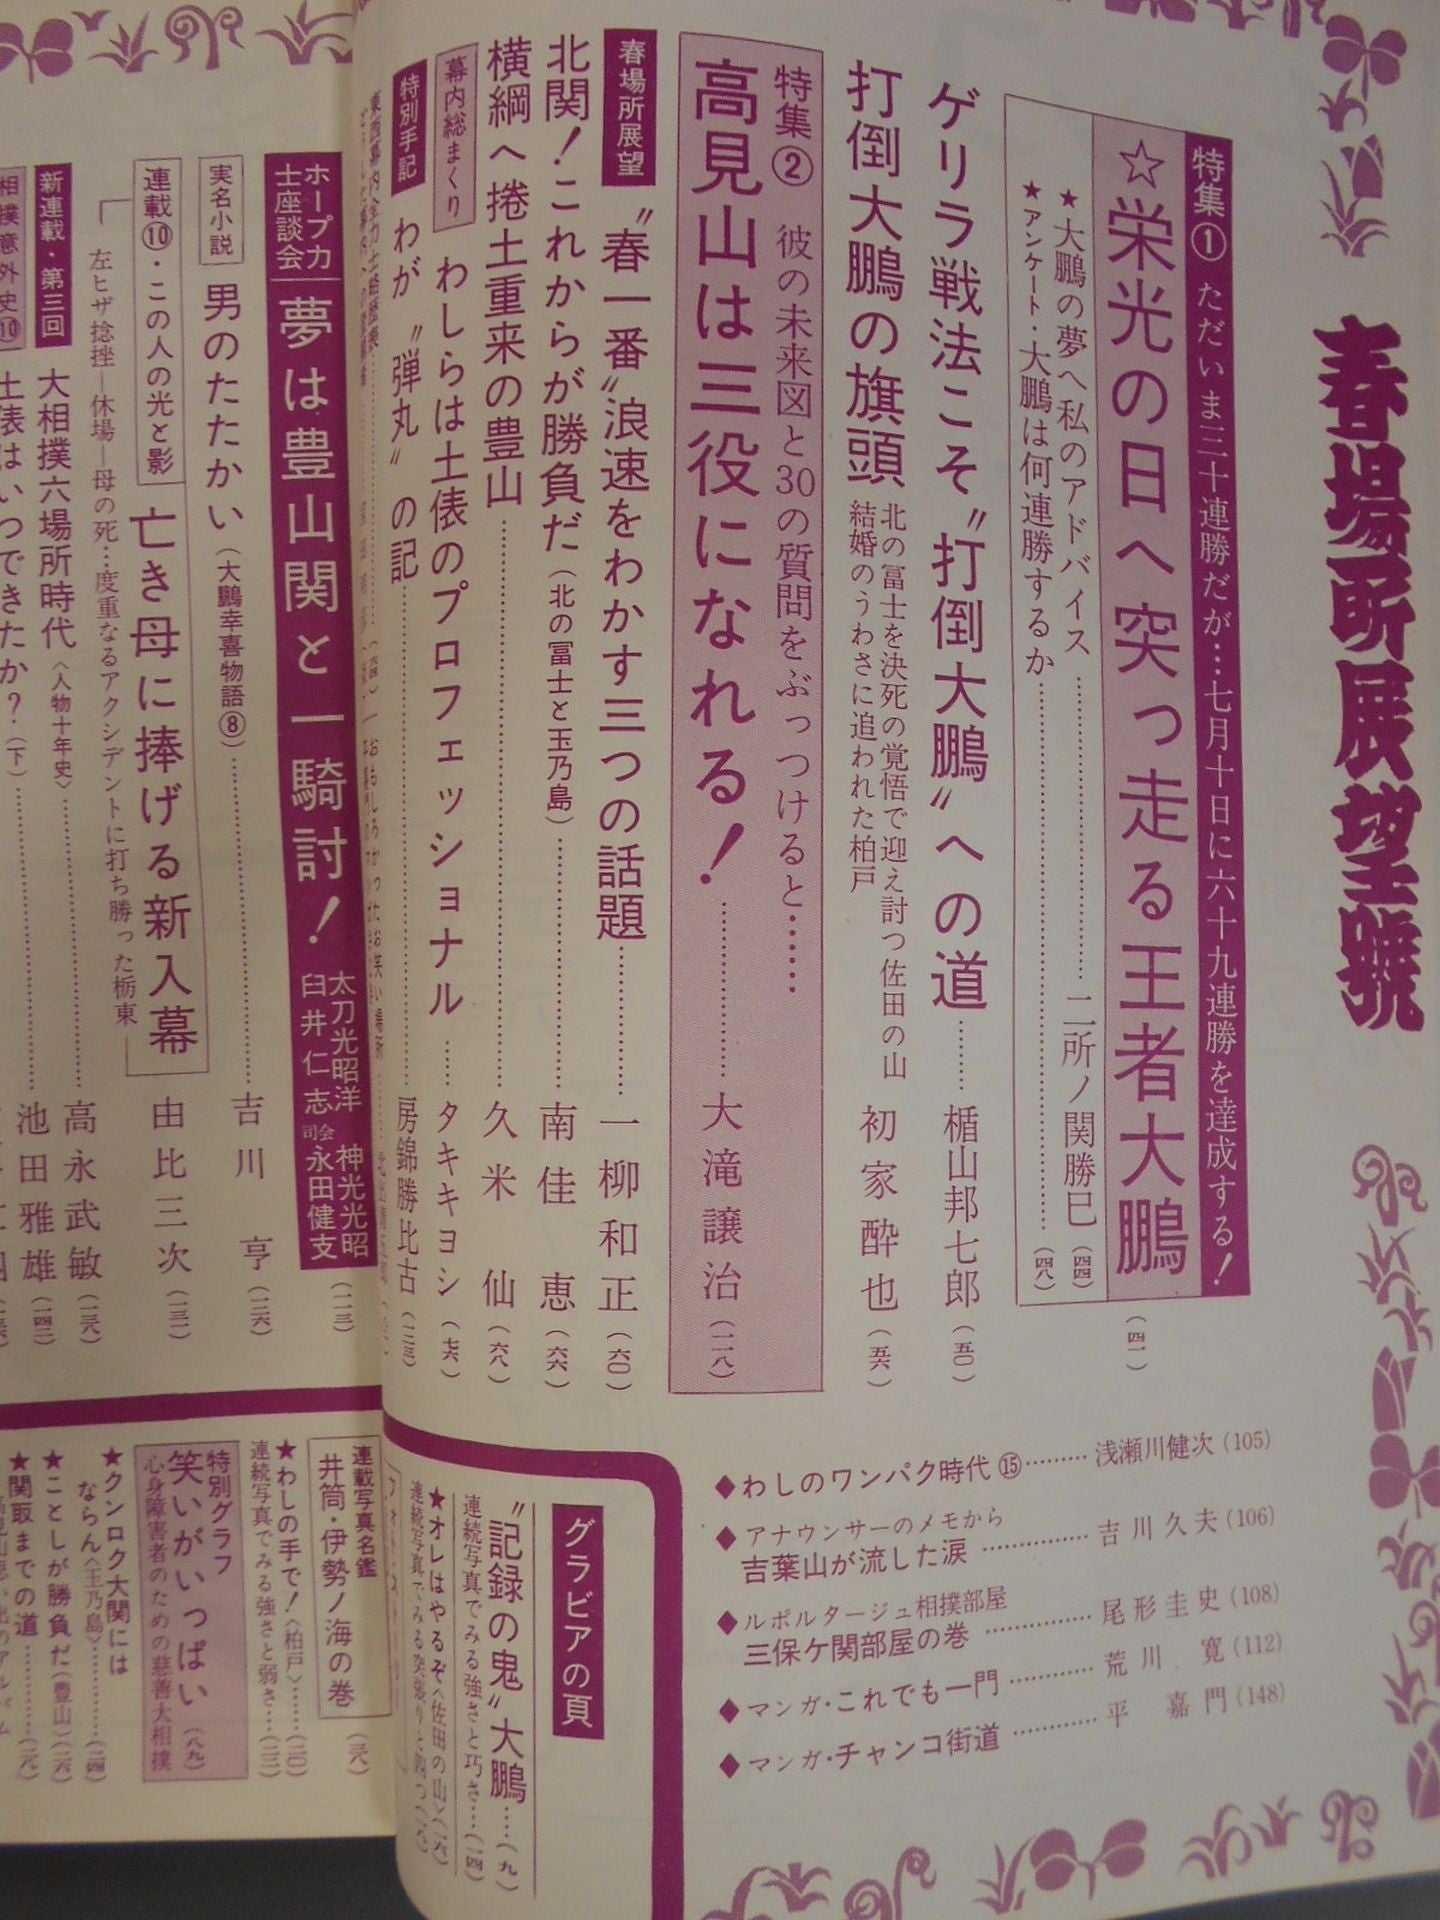 春場所展望號
特集① ただいま三十連勝だが…七月十日に六十九連勝を達成する！
☆栄光の日へ突っ走る王者大鵬 (四一)
★大鵬の夢へ私のアドバイス…………二所ノ関勝巳 (四四)
★アンケート・大鵬は何連勝するか………… (四八)
ゲリラ戦法こそ〝打倒大鵬〟への道……楯山邦七郎 (五〇)
打倒大鵬の旗頭
北の冨士を決死の覚悟で迎え討つ佐田の山
結婚のうわさに追われた柏戸
初家酔也 (五六)
特集② 彼の未来図と30の質問をぶっつけると……
高見山は三役になれる！…………大滝譲治 (一一八)
春場所展望
〝春一番〟浪速をわかす三つの話題…………一柳和正 (六〇)
北関！これからが勝負だ（北の冨士と玉乃島）…………南佳恵 (六六)
横綱へ捲土重来の豊山…………久米仙 (六八)
幕内総まくり
わしらは土俵のプロフェッショナル……タキキヨシ (七六)
特別手記
わが〝弾丸〟の記…………房錦勝比古
ホープ力士座談会
夢は豊山関と一騎討！
太刀光昭洋 神光光昭
臼井仁志 司会 永田健支
(一一三)
実名小説
男のたたかい（大鵬幸喜物語⑧）…………吉川亨 (一二六)
連載⑩・この人の光と影
亡き母に捧げる新入幕
由比三次 (一三二)
左ヒザ捻挫―休場―母の死…度重なるアクシデントに打ち勝った栃東
新連載・第三回
大相撲六場所時代〈人物十年史〉…………高永武敏 (一三八)
相撲意外史⑩
土俵はいつできたか？(下)…………池田雅雄 (一四二)
◆わしのワンパク時代⑮………浅瀬川健次 (105)
◆アナウンサーのメモから
吉葉山が流した涙…………吉川久夫 (106)
◆ルポルタージュ相撲部屋
三保ケ関部屋の巻…………尾形圭史 (108)
◆マンガ・これでも一門…………荒川 寛 (112)
◆マンガ・チャンコ街道…………平 嘉門 (148)
グラビアの頁
〝記録の鬼〟大鵬…… (九)
連続写真でみる強さと巧さ…… (一四)
★オレはやるぞ〈佐田の山〉 (一六)
連続写真でみる突張りと四つ
連載写真名鑑
井筒・伊勢ノ海の巻 (三八)
★わしの手で！〈柏戸〉……… (二〇)
連続写真でみる強さと弱さ…… (二二)
特別グラフ
笑いがいっぱい (八九)
心身障害者のための慈善大相撲
★クンロク大関には
ならん〈玉乃島〉…… (二四)
★ことしが勝負だ〈豊山〉 (二六)
★関取までの道……… (二八)